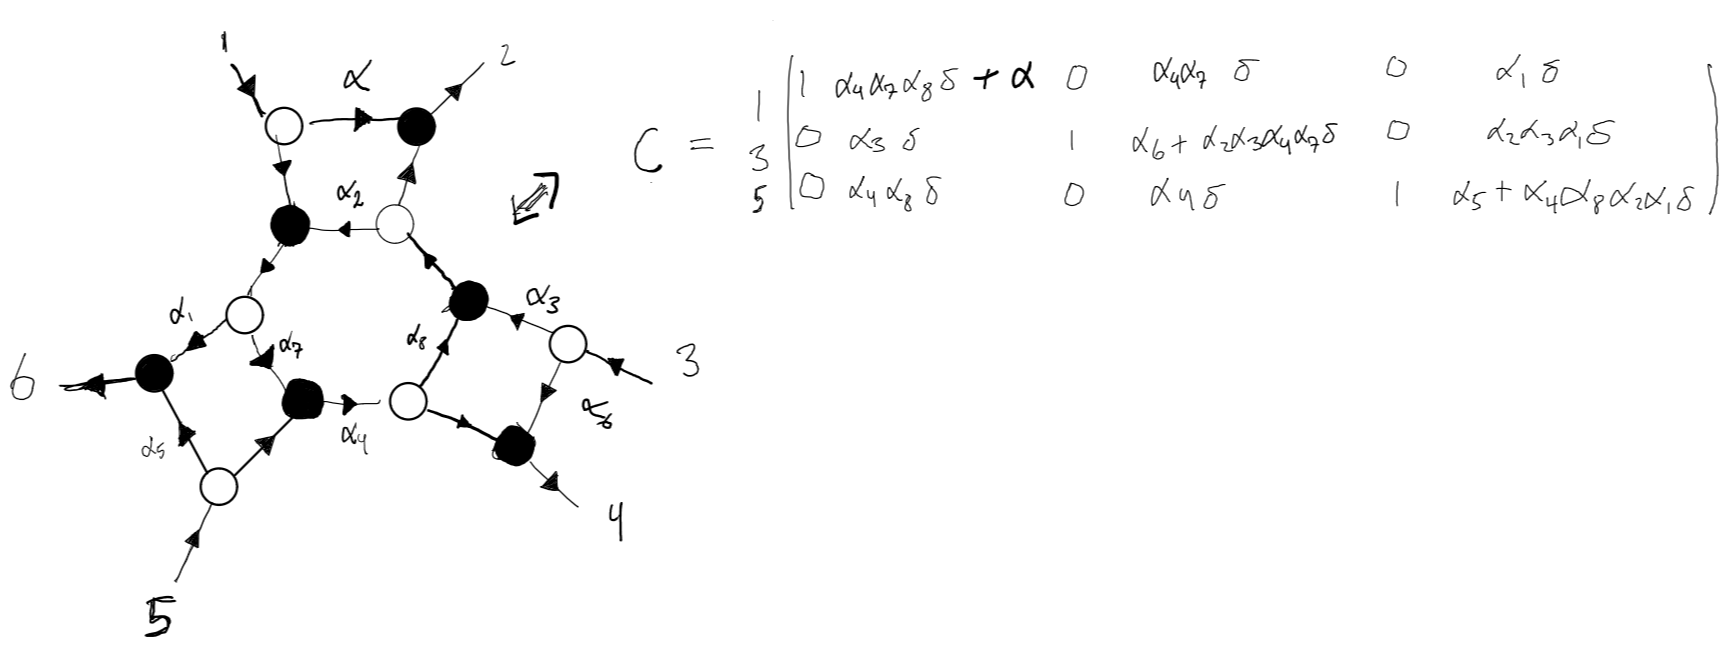 1
2
α
α₂
α₁
α₇
α₈
α₃
6
3
α₆
α₅
α₄
4
5
C =
1 | 1 α₄α₇α₈δ + α 0 α₄α₇ δ 0 α₁ δ
3 | 0 α₃ δ 1 α₆ + α₂α₃α₄α₇δ 0 α₂α₃α₁δ
5 | 0 α₄α₈ δ 0 α₄δ 1 α₅ + α₄α₈α₂α₁δ